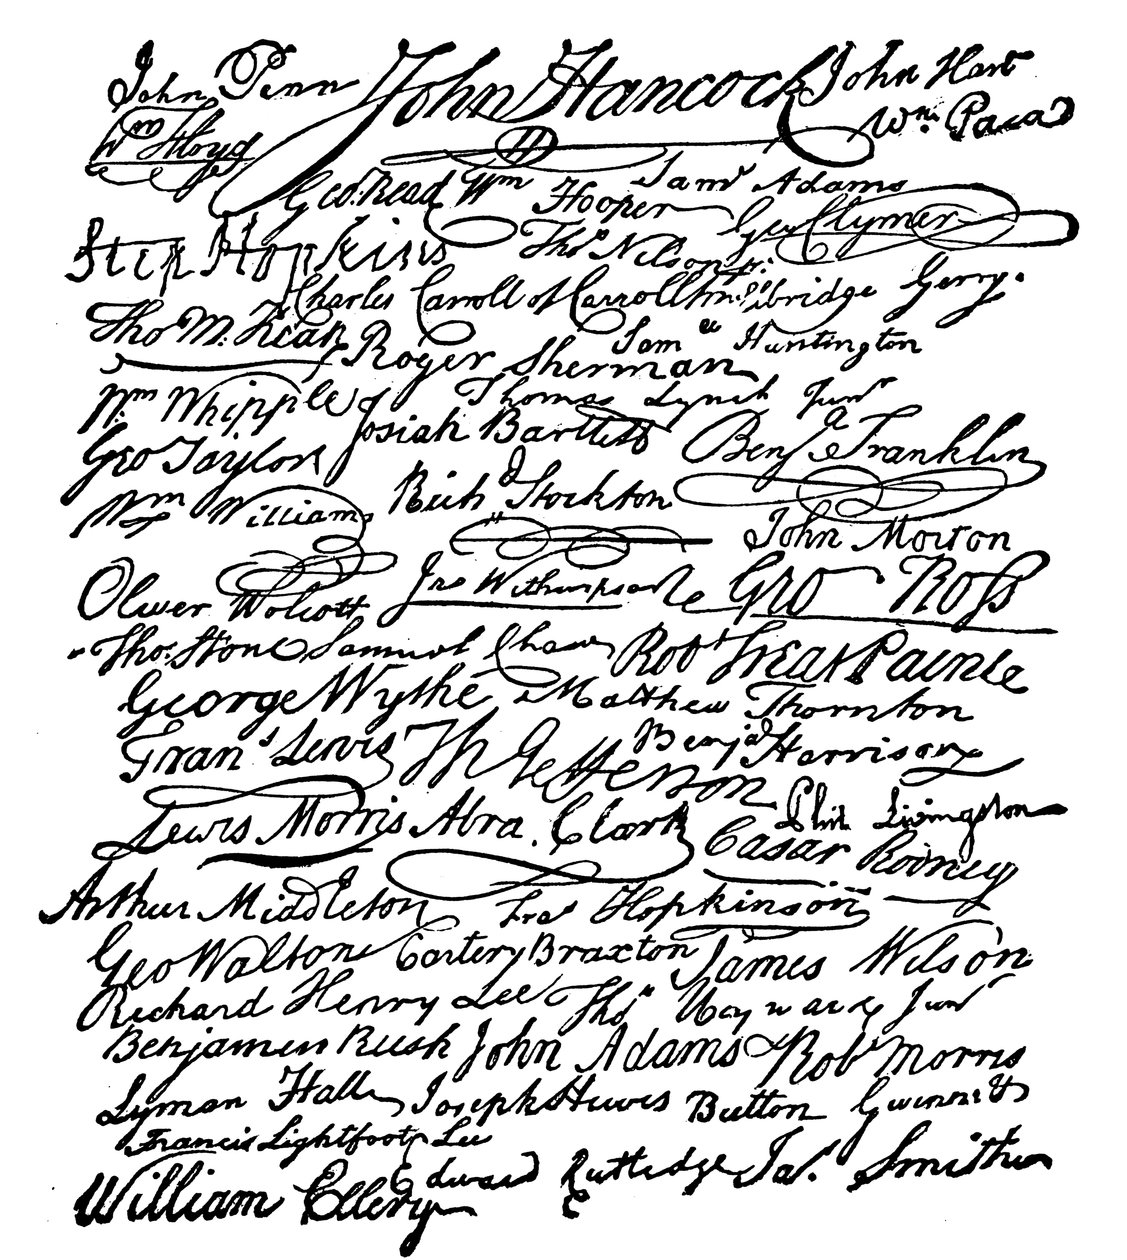 John Penn John Hancock John Hart
Wm Floyd Wm. Paca
Geo. Read Wm Hooper Saml Adams
Geo Clymer
Step Hopkins Thos Nelson jr.
Charles Carroll of Carrollton Elbridge Gerry.
Tho M. Kean Saml Huntington
Roger Sherman
Wm Whipple Thomas Lynch Junr
Josiah Bartlett Benja Franklin
Geo Taylor
Wm Williams Richd Stockton
John Morton
Oliver Wolcott Jno Witherspoon Geo Ross
Thos. Stone Samuel Chase Robt Treat Paine
George Wythe Matthew Thornton
Frans Lewis Th Jefferson Benja Harrison
Lewis Morris Abra. Clark Phil. Livingston
Cæsar Rodney
Arthur Middleton Fras Hopkinson
Geo Walton Carter Braxton James Wilson
Richard Henry Lee Thos Heyward Junr
Benjamin Rush John Adams Robt Morris
Lyman Hall Joseph Hewes Button Gwinnett
Francis Lightfoot Lee
William Ellery Edward Rutledge Jas. Smith